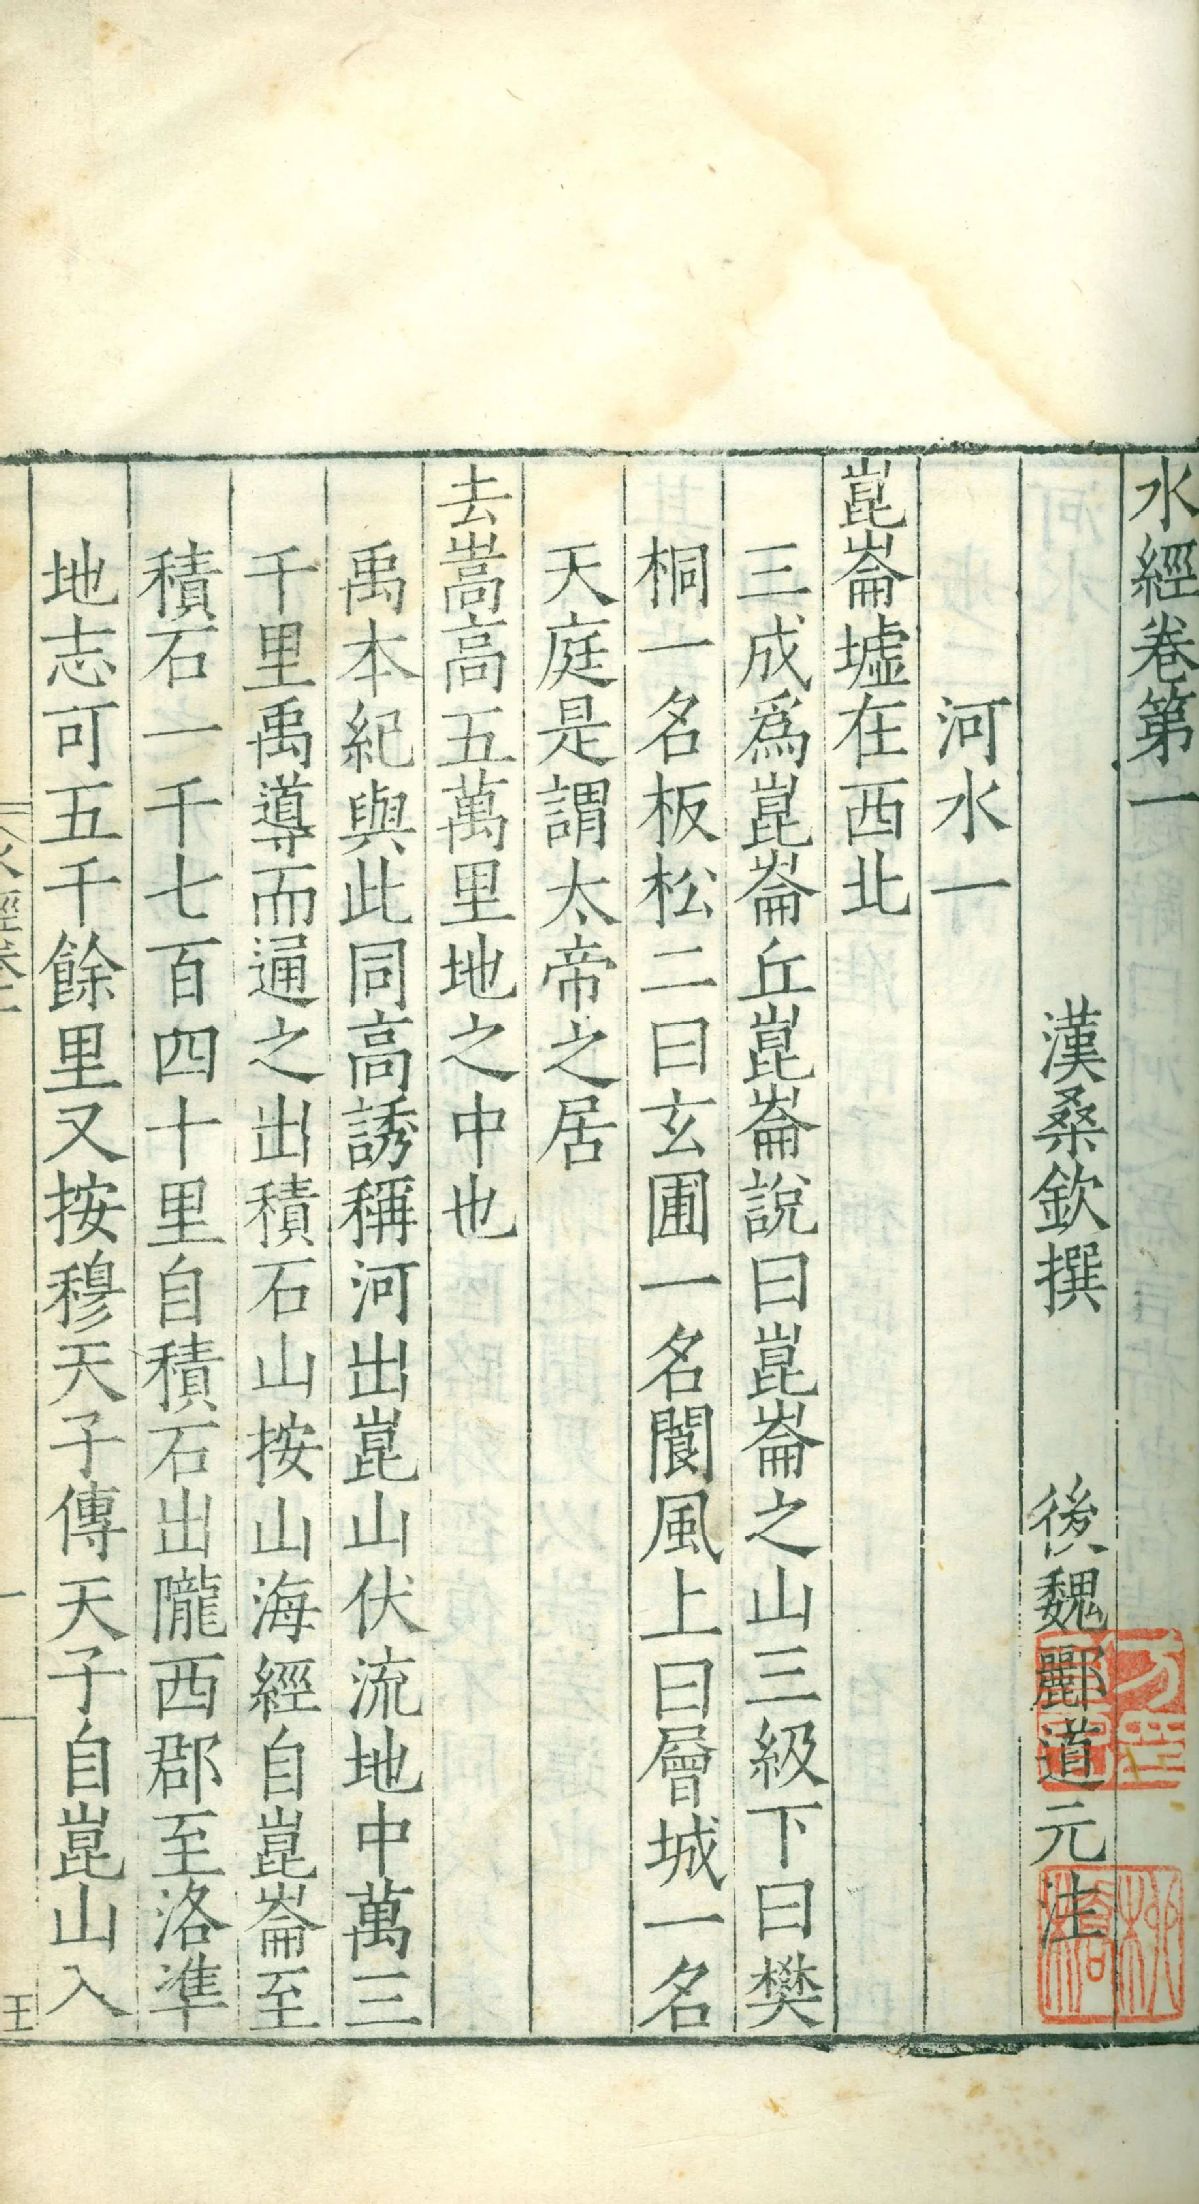 水經卷第一
漢桑欽撰 後魏酈道元注
河水一
崑崙墟在西北
三成爲崑崙丘崑崙說曰崑崙之山三級下曰樊
桐一名板松二曰玄圃一名閬風上曰層城一名
天庭是謂太帝之居
去嵩高五萬里地之中也
禹本紀與此同高誘稱河出崑山伏流地中萬三
千里禹導而通之出積石山按山海經自崑崙至
積石一千七百四十里自積石出隴西郡至洛準
地志可五千餘里又按穆天子傳天子自崑山入
水經卷一
一
王